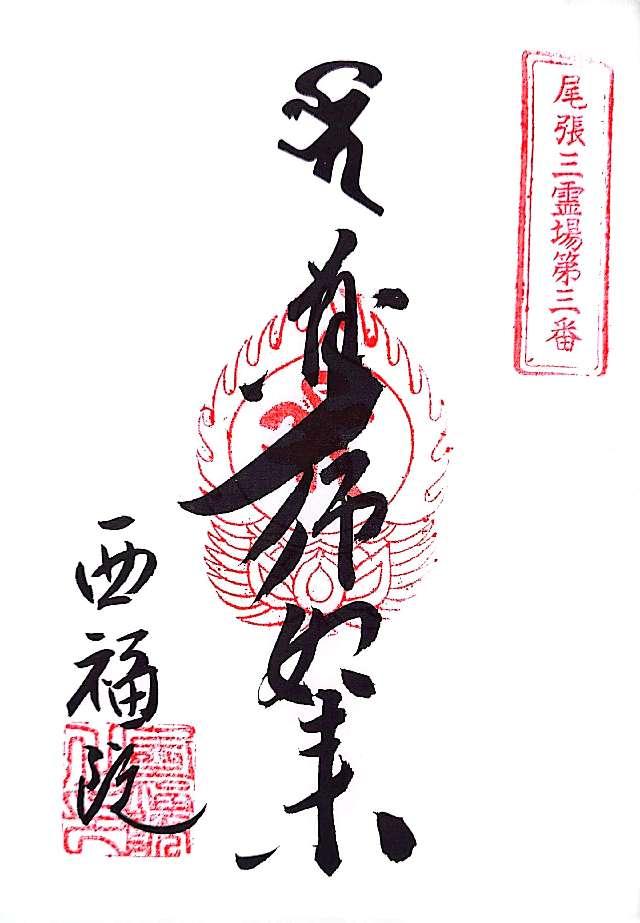 尾張三霊場第三番
薬師如来
西福院